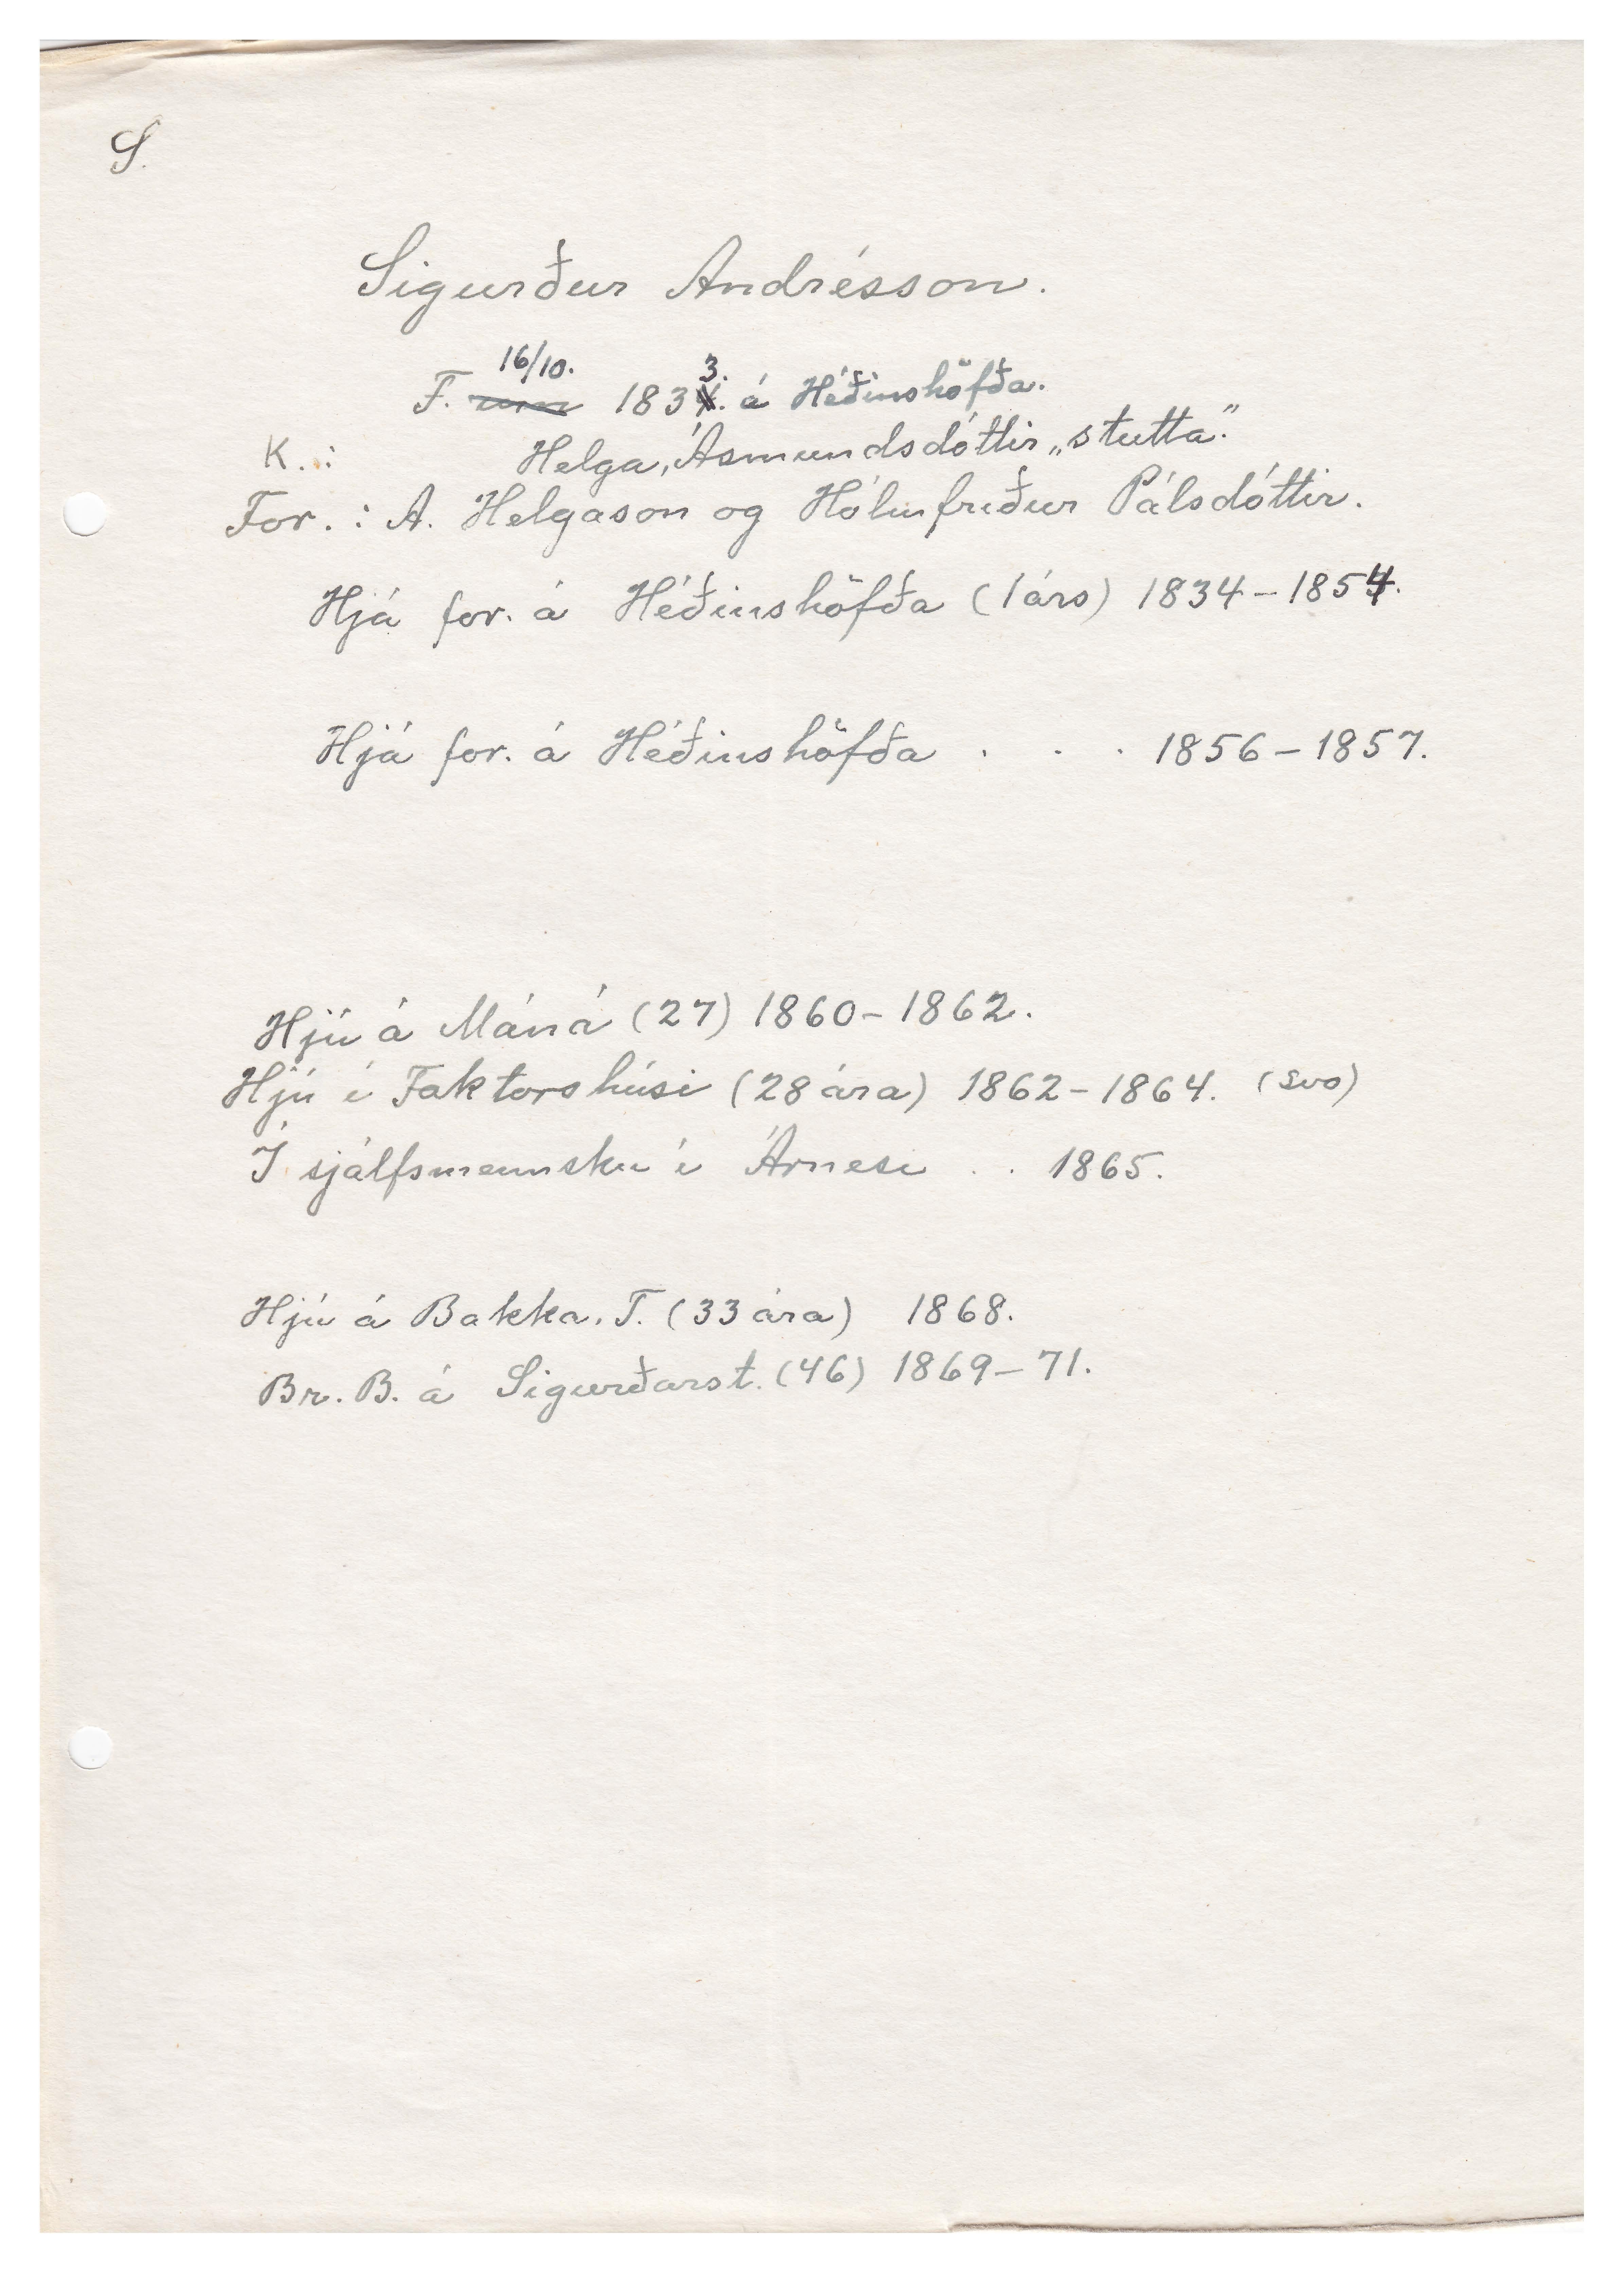 S.
Sigurður Andrésson.
F. 16/10. 1833. á Héðinshöfða.
K. : Helga, Ásmundsdóttir „stutta."
For. : A. Helgason og Hólmfríður Pálsdóttir.
Hjá for. á Héðinshöfða (1 árs) 1834 - 1854.
Hjá for. á Héðinshöfða . . . 1856 - 1857.
Hjú á Máná (27) 1860 - 1862.
Hjú í Faktorshúsi (28 ára) 1862 - 1864. (svo)
Í sjálfsmennsku í Árnesi . . 1865.
Hjú á Bakka. T. (33 ára) 1868.
Br. B. á Sigurðarst. (46) 1869 - 71.